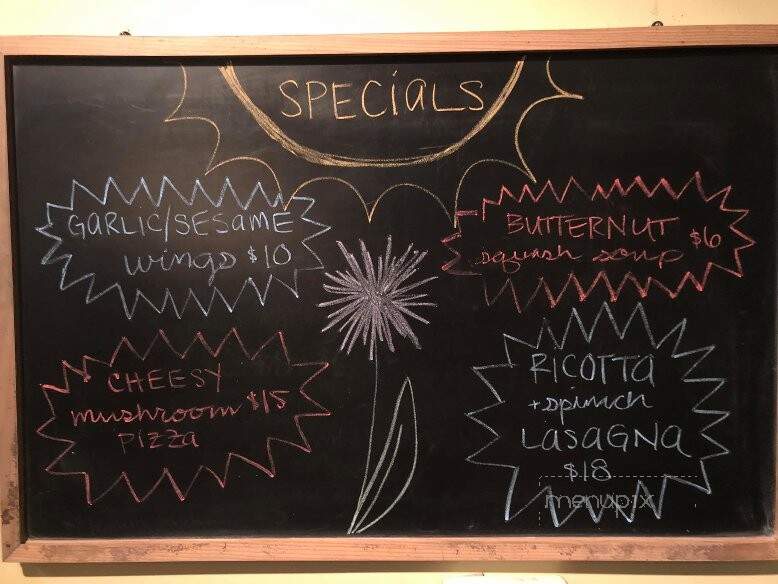 SPECiaLS
GaRLiC/SESaME
wings $10
BUTTERNUT
squash soup $6
CHEESY
mushroom $15
PiZZa
RiCOTTa
+ spinach
LaSaGNa
$18
menupix